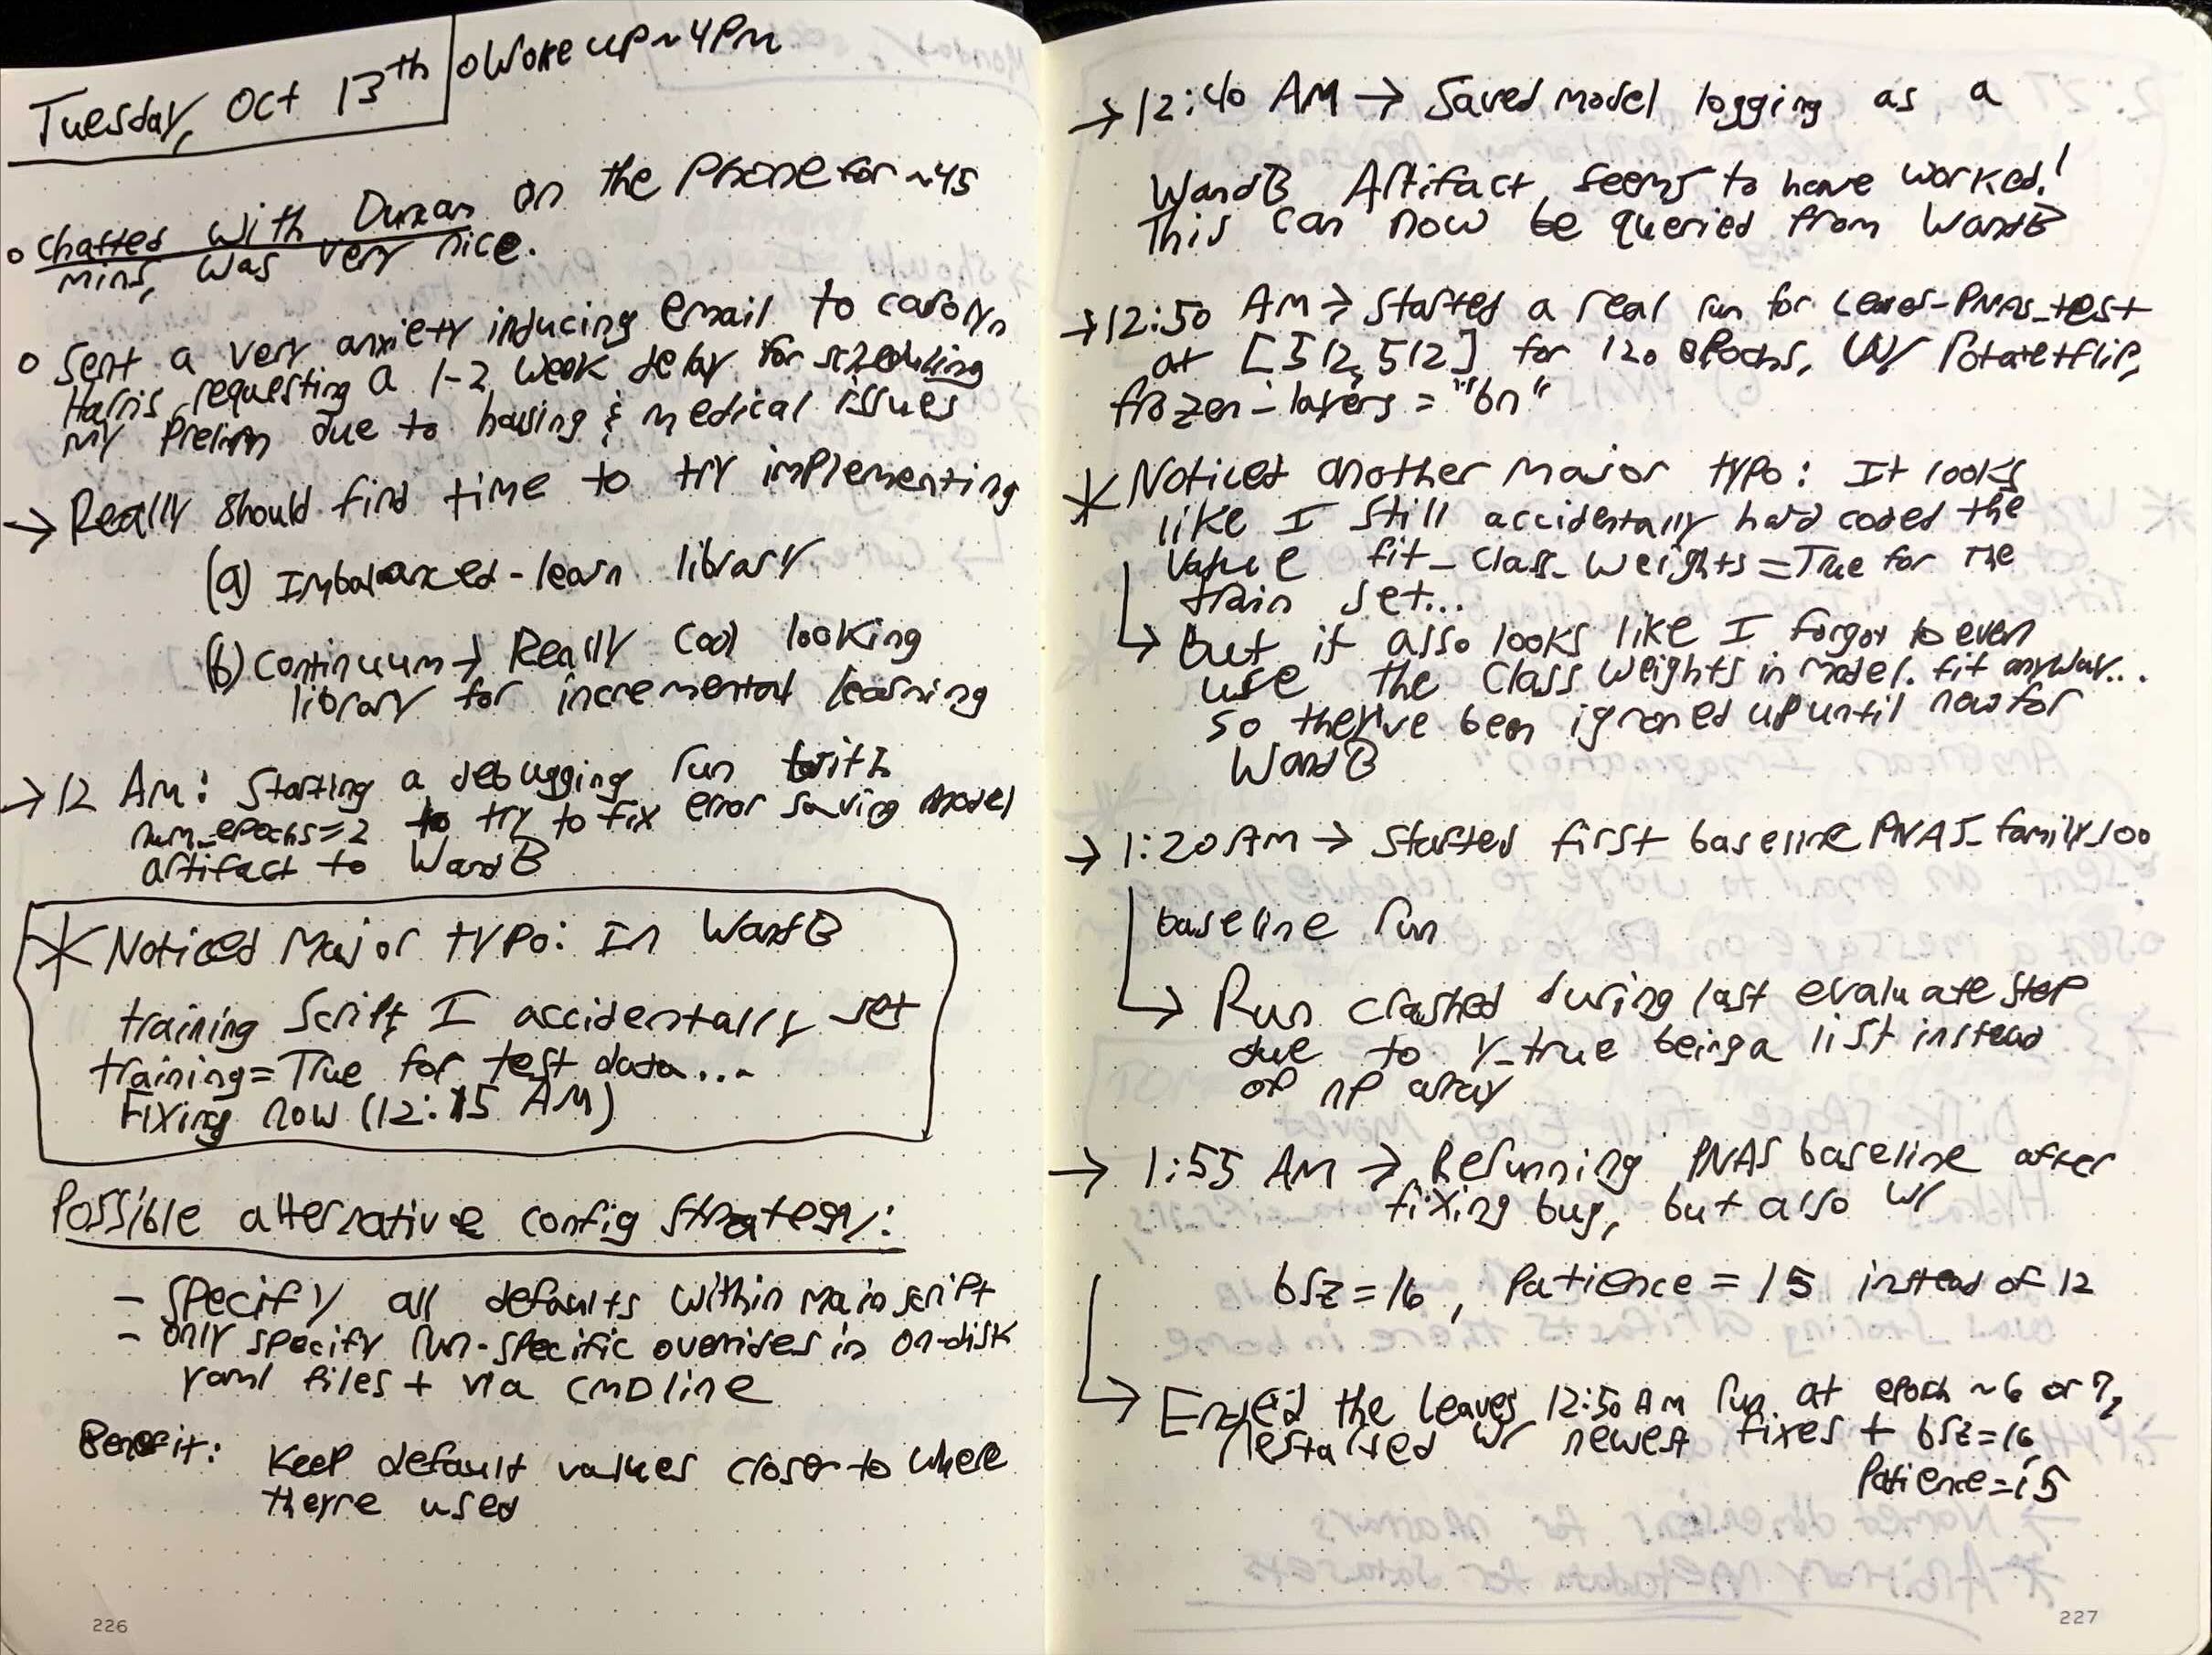 Tuesday, Oct 13th
o Woke up ~4PM
o Chatted with Duncan on the Phone for ~45
mins, was very nice.
o Sent a very anxiety inducing email to Carolyn
Harris requesting a 1-2 week delay for scheduling
my Prelim due to housing & medical issues
→ Really should find time to try implementing
(a) Imbalanced-learn library
(b) Continuum → Really cool looking
library for incremental learning
→ 12 AM: Starting a debugging run with
num_epochs=2 to try to fix error saving model
artifact to WandB
* Noticed Major typo: In WandB
training script I accidentally set
training=True for test data...
Fixing now (12:15 AM)
Possible alternative config strategy:
- Specify all defaults within main script
- only specify run-specific overrides in on-disk
yaml files + via CMD line
Benefit: Keep default values closer to where
theyre used
226
→ 12:40 AM → Saved model logging as a
WandB Artifact seems to have worked!
This can now be queried from WandB
→ 12:50 AM → Started a real run for Leaves-PNAS_test
at [512, 512] for 120 epochs, w/ rotate+flip,
frozen-layers = "bn"
* Noticed another major typo: It looks
like I still accidentally hard coded the
value fit_class_weights=True for the
train set...
↳ But it also looks like I forgot to even
use the class weights in model.fit anyway...
so they've been ignored up until now for
WandB
→ 1:20 AM → Started first baseline PNAS_family_100
baseline run
↳ Run crashed during last evaluate step
due to y_true being a list instead
of np array
→ 1:55 AM → Rerunning PNAS baseline after
fixing bug, but also w/
bsz=16, Patience = 15 instead of 12
↳ Ended the leaves 12:50 AM run at epoch ~6 or 7,
restarted w/ newest fixes + bsz=16,
Patience=15
227